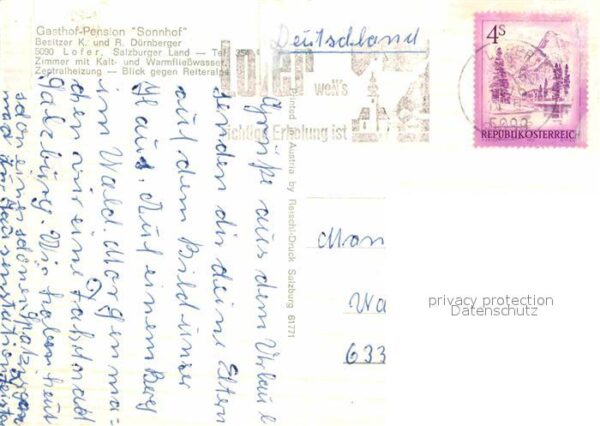 Gasthof-Pension "Sonnhof"
Besitzer K. und R. Dürnberger
5090 Lofer, Salzburger Land — Tel.
Zimmer mit Kalt- und Warmfließwasser
Zentralheizung — Blick gegen Reiteralpe
Deutschland
lofer
weiß's
richtige Erholung ist
4S
REPUBLIK ÖSTERREICH
Printed in Austria by Reischl-Druck Salzburg 61771
Grüße aus dem Urlaub
senden dir deine Eltern
auf dem Bild unser
Haus. Auf einem Berg
im Wald. Morgen ma-
chen wir eine Fahrt nach
Salzburg. Wir haben heut
schon einen schönen Platz
Man
Wa
633
privacy protection
Datenschutz